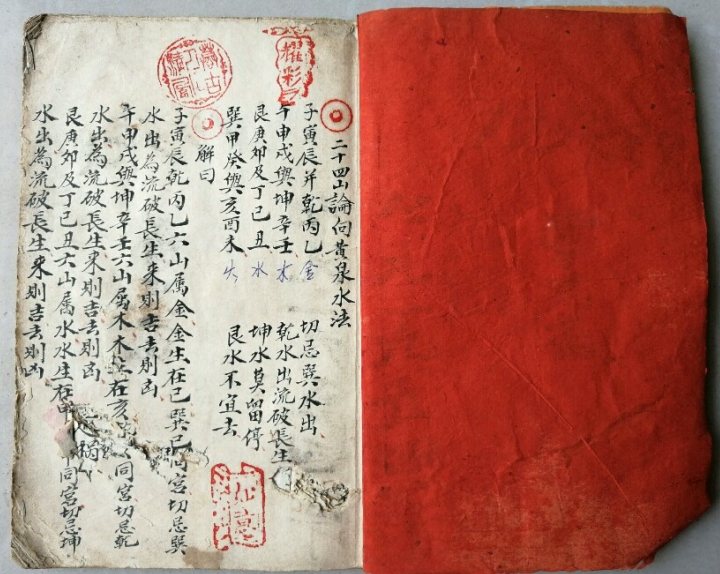 耀彩
二十四山論向黃泉水法
子寅辰并乾丙乙金 切忌巽水出
午申戌與坤辛壬木 乾水出流破長生
艮庚卯及丁巳丑水 坤水莫留停
巽甲癸與亥酉未火 艮水不宜去
解曰
子寅辰乾丙乙六山属金金生在巳巽巳同宫切忌巽
水出為流破長生来則吉去則凶
午申戌與坤辛壬六山属木木生在亥同宫切忌乾
水出為流破長生来則吉去則凶
艮庚卯及丁巳丑六山属水水生在申同宫切忌坤
水出為流破長生来則吉去則凶